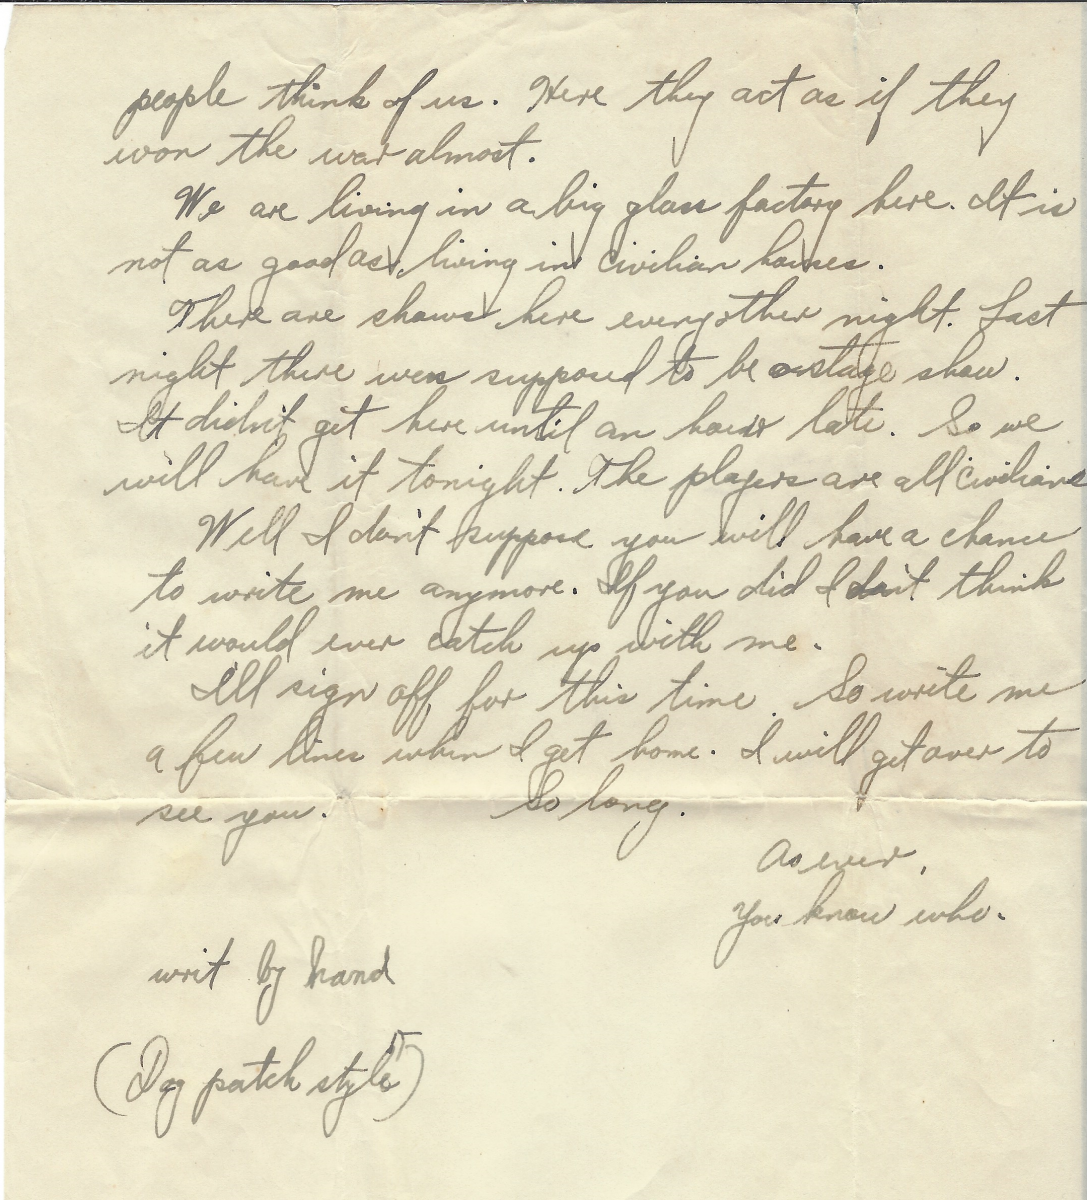 people think of us. Here they act as if they
won the war almost.
We are living in a big glass factory here. It is
not as good as living in civilian houses.
There are shows here every other night. Last
night there was supposed to be a stage show.
It didn't get here until an hour late. So we
will have it tonight. The players are all civilians
Well I don't suppose you will have a chance
to write me anymore. If you did I don't think
it would ever catch up with me.
I'll sign off for this time. So write me
a few lines when I get home. I will get over to
see you. So long.
As ever,
You know who.
writ by hand
(Dog patch style)